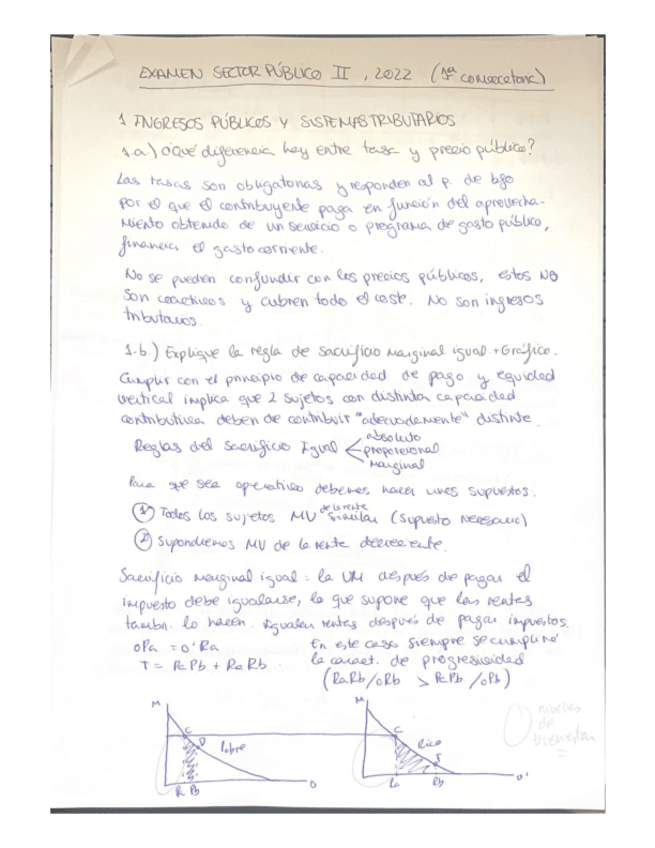 EXAMEN SECTOR PÚBLICO II, 2022 (1ª convocatoria)
1 INGRESOS PÚBLICOS Y SISTEMAS TRIBUTARIOS
1.a) ¿Qué diferencia hay entre tasa y precio público?
Las tasas son obligatorias y responden al p. de bfo
por el que el contribuyente paga en función del aprovecha-
miento obtenido de un servicio o programa de gasto público,
financia el gasto corriente.
No se pueden confundir con los precios públicos, estos NO
son coactivos y cubren todo el coste. No son ingresos
tributarios.
1.b.) Explique la regla de sacrificio marginal igual + Gráfico.
Cumplir con el principio de capacidad de pago y equidad
vertical implica que 2 sujetos con distinta capacidad
contributiva deben de contribuir "adecuadamente" distinte.
Reglas del Sacrificio Igual
absoluto
proporcional
marginal
Para que sea operativo debemos hacer unos supuestos.
① Todos los sujetos MU de la renta similar (supuesto necesario)
② Supondremos MU de la renta decreciente.
Sacrificio marginal igual: la UM después de pagar el
impuesto debe igualarse, lo que supone que las rentas
tambn. lo hacen. Igualan rentas después de pagar impuestos.
OPa = O'Ra
T = PaPb + RaRb.
En este caso siempre se cumplirá
la caract. de progresividad
(RaRb/ORb > PaPb/OPb)
M
C
D
Pobre
Pa Pb
O
M
C
Rico
F
Ra
Rb
O'
niveles
de
bienestar
=